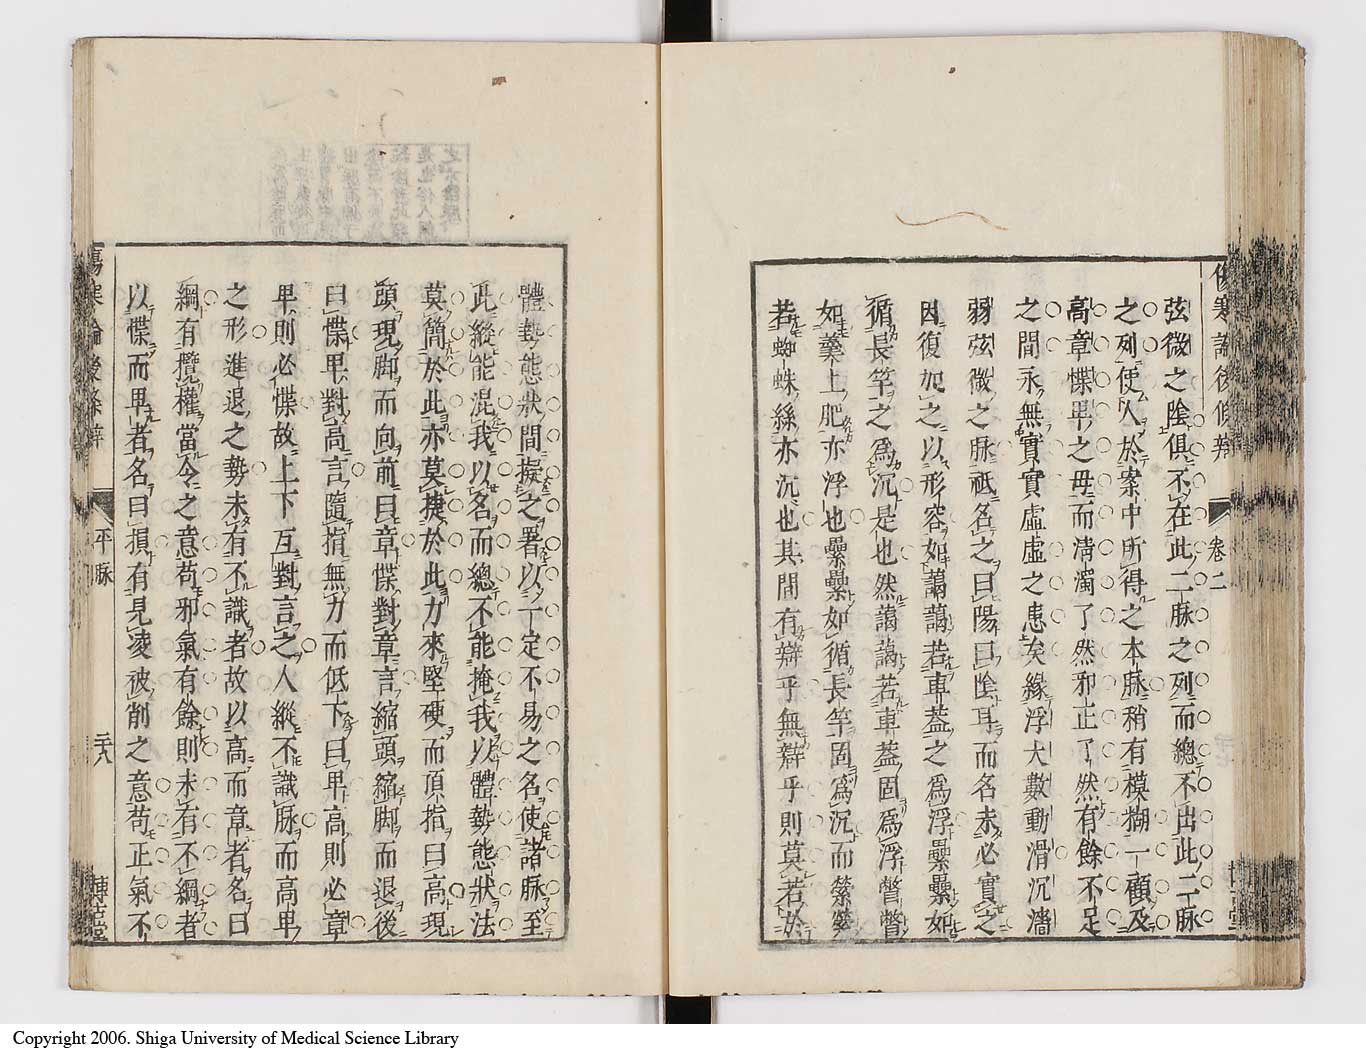 傷寒論後條辨 卷二
弦微之陰俱不在此二脉之列而總不出此二脉
之列使人於案中所得之本脉稍有模糊一顧及
高章惵卑之毋而清濁了然邪正了然有餘不足
之間永無實實虛虛之患矣緣浮大數動滑沉濇
弱弦微之脉祇名之曰陽曰陰耳而名未必實之
因復加之以形容如藹藹若車葢之爲浮纍纍如
循長竿之爲沉是也然藹藹若車葢固爲浮瞥瞥
如羹上肥亦浮也纍纍如循長竿固爲沉而縈縈
若蜘蛛絲亦沉也其間有辯乎無辯乎則莫若於
體勢態狀間擬之署以一定不易之名使諸脉至
此縱能混我以名而總不能掩我以體勢態狀法
莫簡於此亦莫捷於此力來堅硬而頂指曰高現
頭現脚而向前曰章惵對章言縮頭縮脚而退後
曰惵卑對高言隨指無力而低下曰卑高則必章
卑則必惵故上下互對言之人縱不識脉而高卑
之形進退之勢未有不識者故以高而章者名曰
綱有攬權當令之意苟邪氣有餘則未有不綱者
以惵而卑者名曰損有見凌被削之意苟正氣不
傷寒論後條辨 平脉 二八 博古堂
Copyright 2006. Shiga University of Medical Science Library